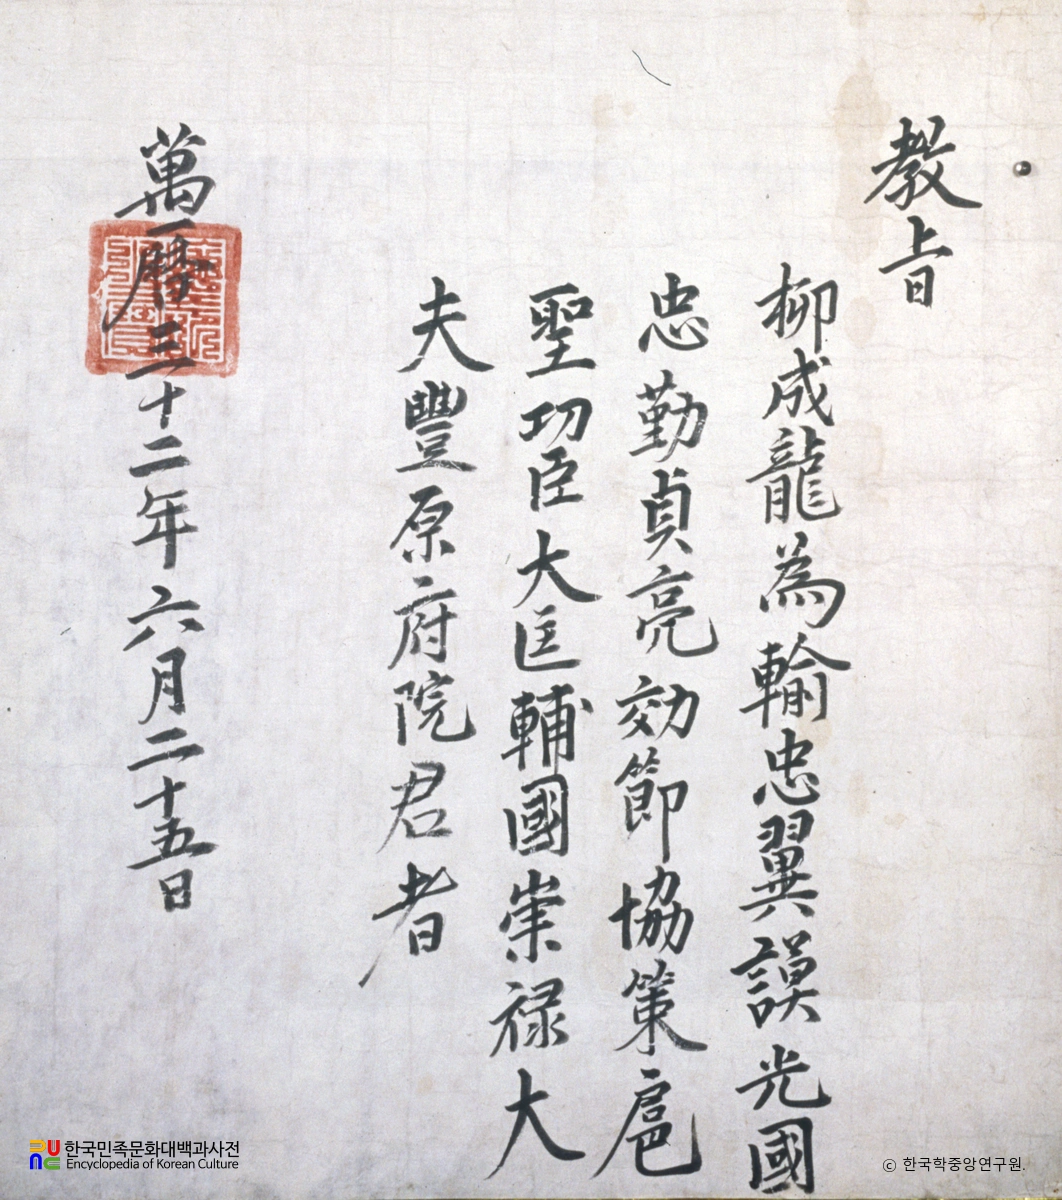 教旨
柳成龍為輸忠翼謨光國
忠勤貞亮効節協策扈
聖功臣大匡輔國崇禄大
夫豐原府院君者
萬曆三十二年六月二十五日
한국민족문화대백과사전
Encyclopedia of Korean Culture
ⓒ 한국학중앙연구원.